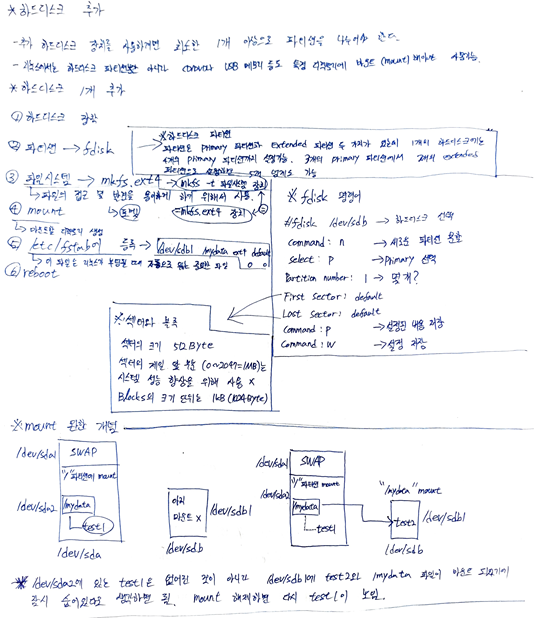 ※ 하드디스크 추가
- 추가 하드디스크 장치를 사용하려면 최소한 1개 이상으로 파티션을 나누어야 한다.
- 리눅스에서는 하드디스크 파티션뿐만 아니라 CD/DVD나 USB 메모리 등도 특정 디렉터리에 마운트 (mount)해야만 사용가능.
※ 하드디스크 1개 추가
① 하드디스크 장착
② 파티션 → fdisk
※ 하드디스크 파티션
파티션은 Primary 파티션과 Extended 파티션 두 가지가 있는데 1개의 하드디스크에는
4개의 Primary 파티션까지 설정가능. 3개의 Primary 파티션에서 2개의 extended
파티션으로 5개 가능
③ 파일시스템 → mkfs.ext4 → mkfs -t 파일시스템 장치
→ 파일의 접근 및 발견을 용이하게 하기 위해서 사용.
= mkfs.ext4 장치
④ mount
→ 마운트할 디렉터리 생성
⑤ /etc/fstab에 등록 → /dev/sdb1 /mydata ext4 default
0 0
→ 이 파일은 리눅스가 부팅될 때마다 자동으로 읽는 중요한 파일
⑥ reboot
※ fdisk 명령어
#fdisk /dev/sdb → 하드디스크 선택
command: n → 새로운 파티션 분할
select: p → Primary 선택
Partition number: 1 → 몇개?
First sector: default
Last sector: default
Command: p → 설정된 내용 저장
Command: w → 설정 저장
※ 섹터와 블록
섹터의 크기 512Byte
섹터의 제일 앞 부분 (0~2047=1MB)는
시스템 성능 향상을 위해 사용 X
Blocks의 크기 단위는 1kB (1024Byte)
※ mount 된한 개념
/dev/sda1 SWAP
"/"파티션이 mount
/dev/sda2 /mydata
test1
/dev/sda
아직
마운트 X
/dev/sdb1
/dev/sdb
/dev/sda1 SWAP
"/"파티션 mount
/dev/sda2 /mydata
test1
"/mydata" mount
test2 /dev/sdb1
/dev/sdb
※ /dev/sda2에 있는 test1은 없어진 것이 아니라 /dev/sdb1에 test2와 /mydata 파일이 마운트 되었기에
잠시 숨어있다고 생각하면 됨. mount 해제하면 다시 test1이 보임.